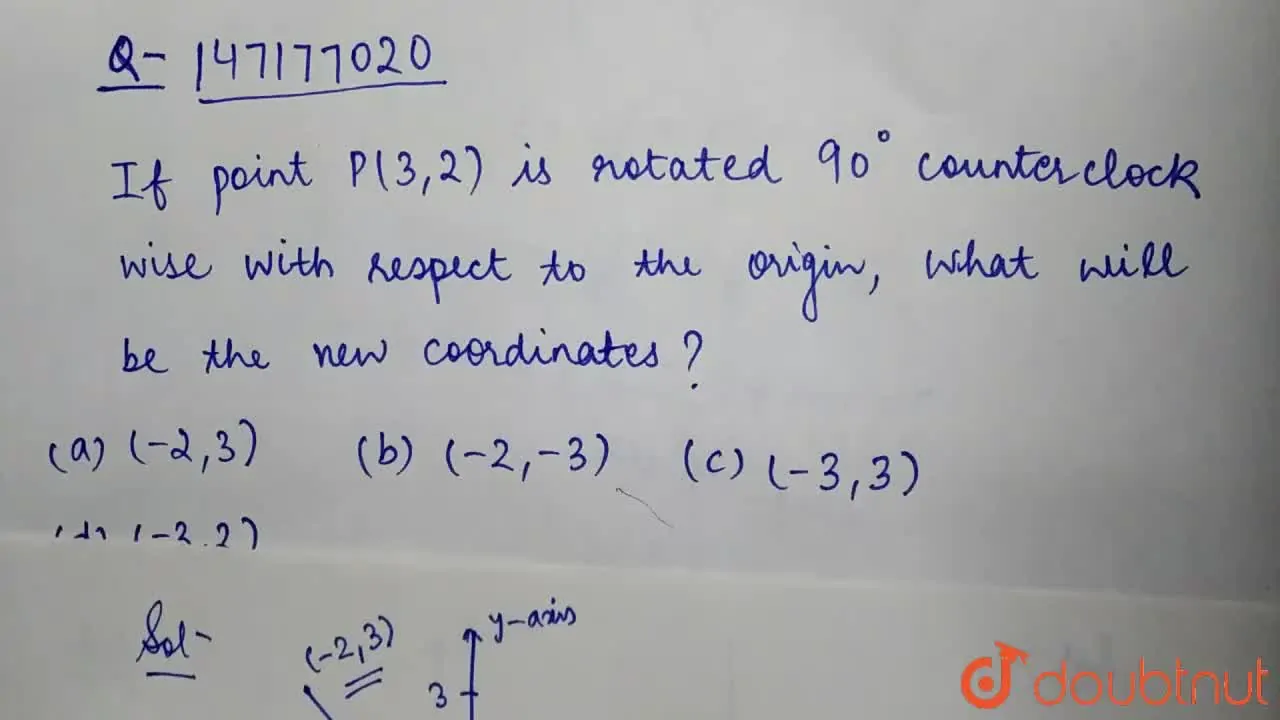 Q- 147177020
If point P(3,2) is rotated 90° counterclock
wise with respect to the origin, what will
be the new coordinates?
(a) (-2,3) (b) (-2,-3) (c) (-3,3)
Sol-
(-2,3) y-axis
3
doubtnut